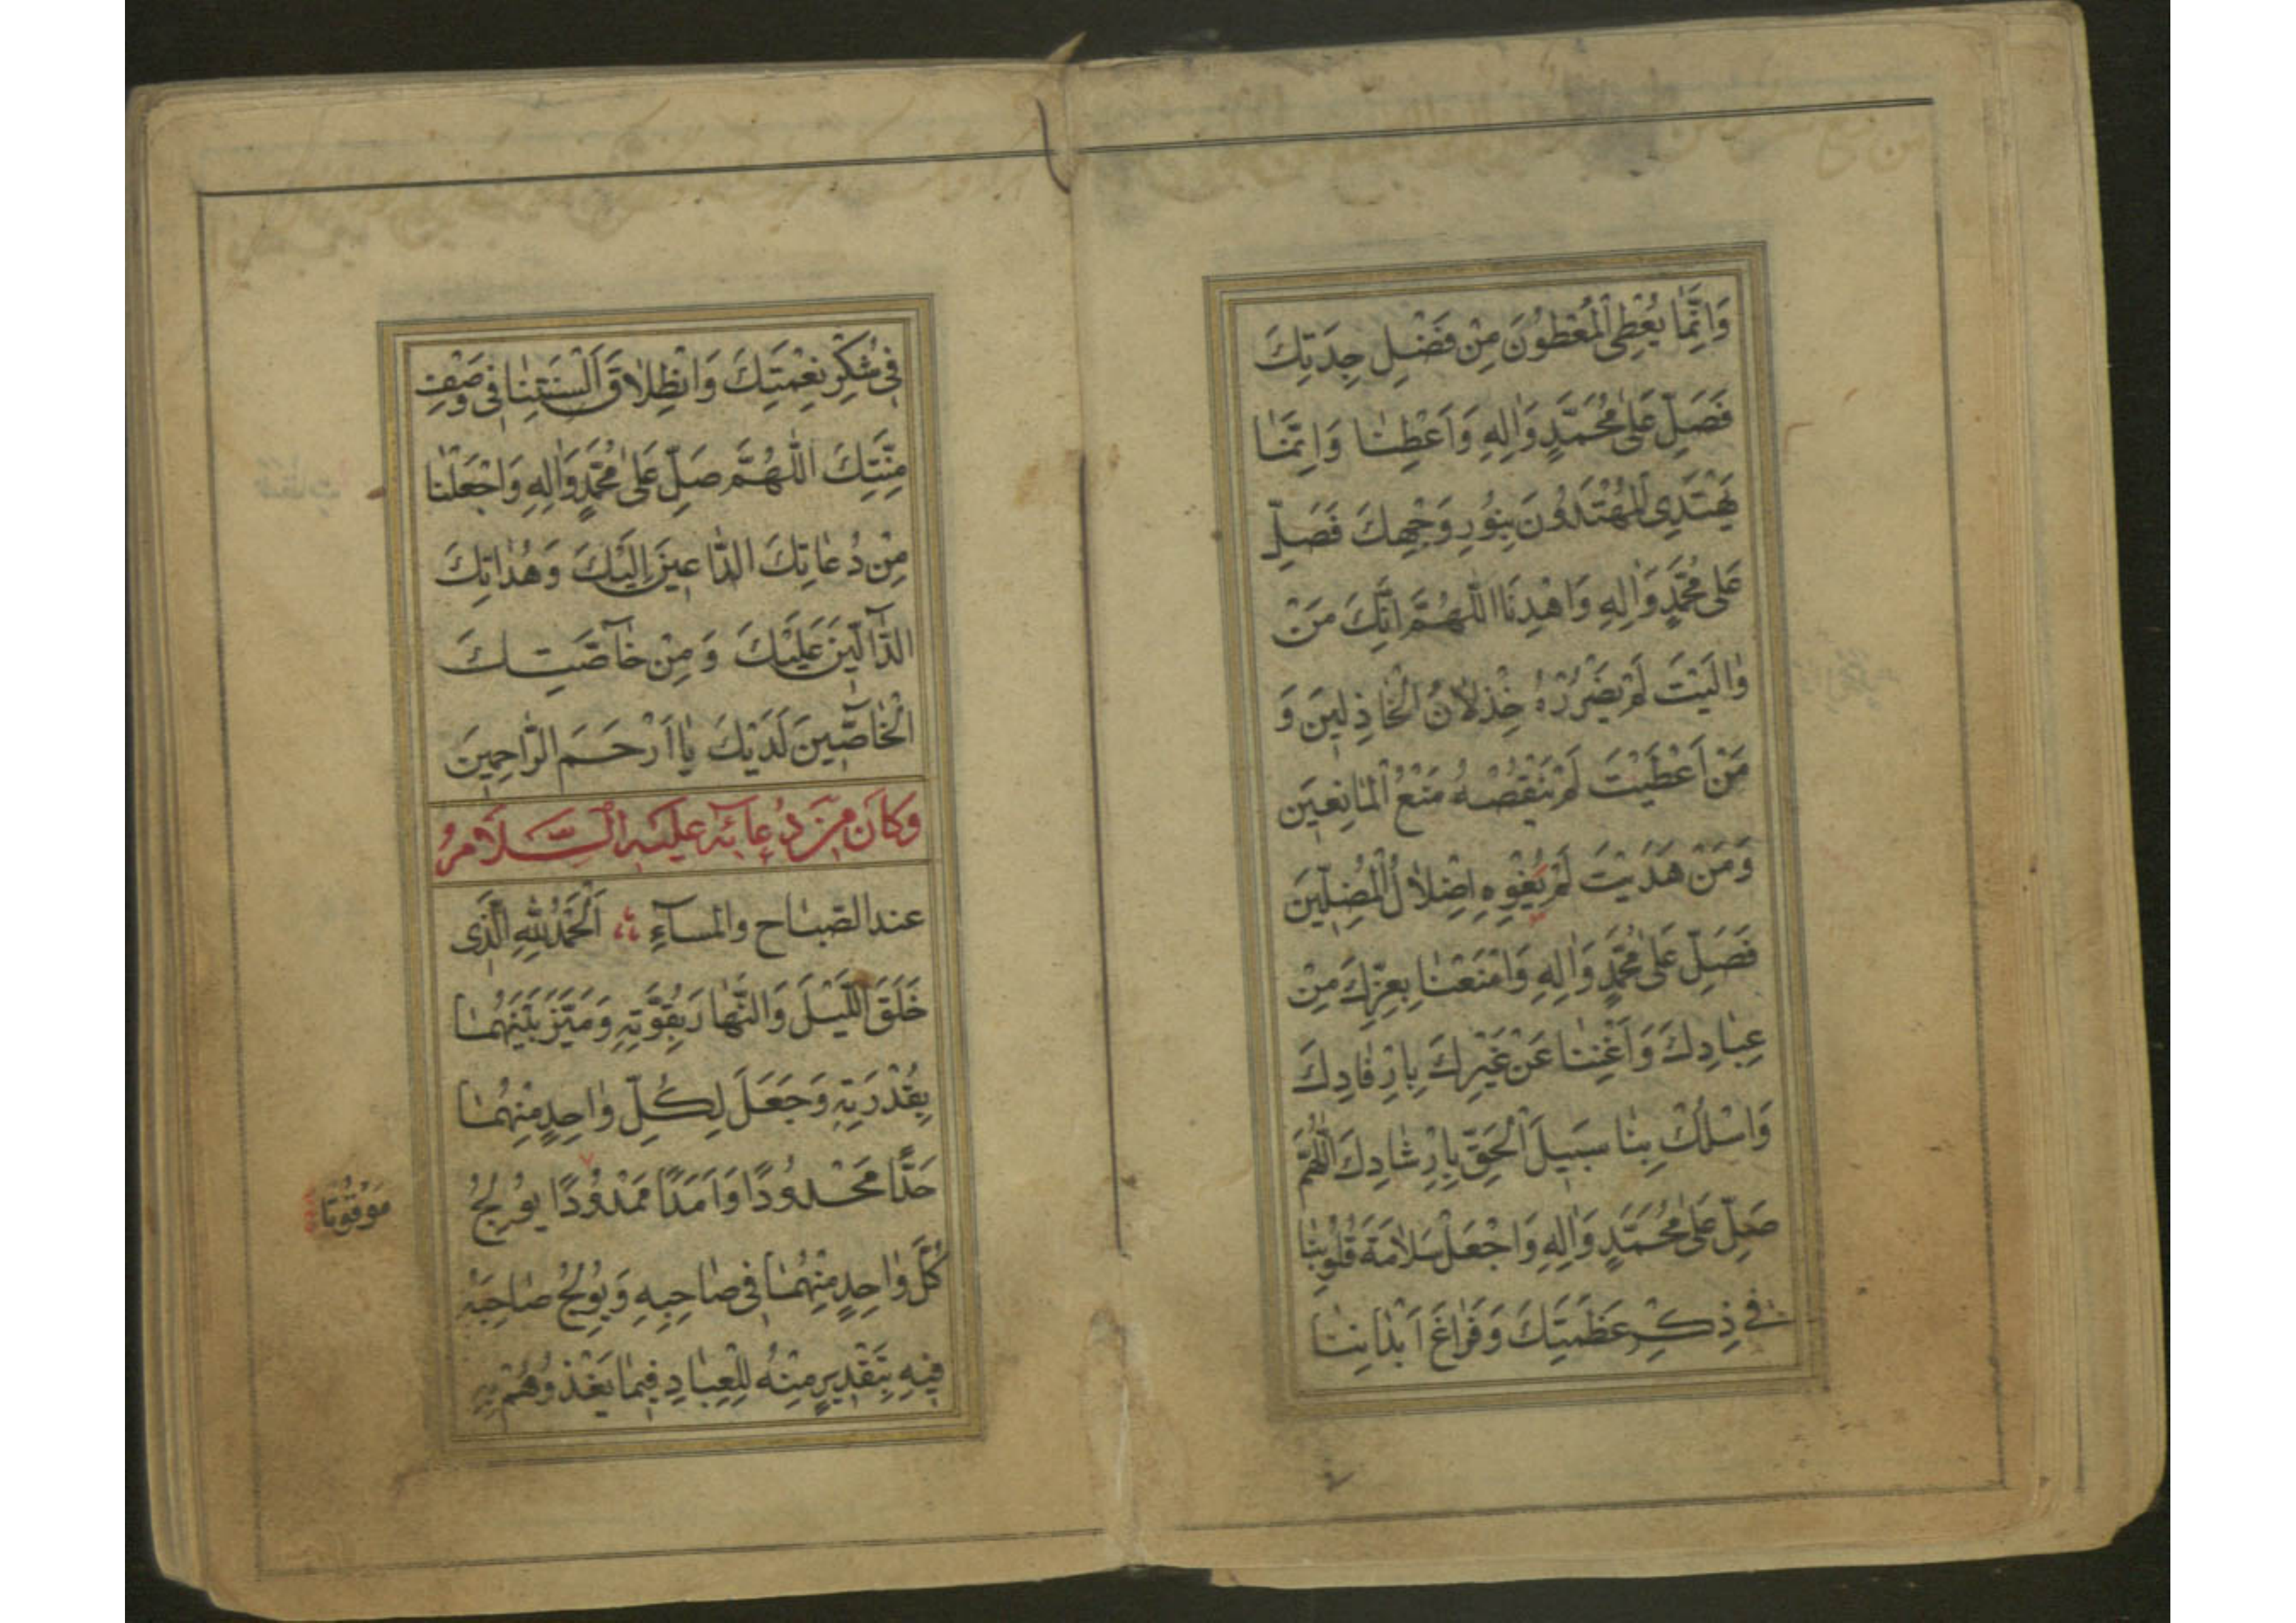 وَاِنَّمٰا يُعْطِي الْمُعْطُونَ مِنْ فَضْلِ جِدَتِكَ
فَصَلِّ عَلىٰ مُحَمَّدٍ وَاٰلِهِ وَاَعْطِنٰا وَاِنَّمٰا
يَهْتَدِي الْمُهْتَدُونَ بِنُورِ وَجْهِكَ فَصَلِّ
عَلىٰ مُحَمَّدٍ وَاٰلِهِ وَاهْدِنَا اللّٰهُمَّ اِنَّكَ مَنْ
وٰالَيْتَ لَمْ يَضْرُرْهُ خِذْلاٰنُ الْخٰاذِلِينَ وَ
مَنْ اَعْطَيْتَ لَمْ يَنْقُصْهُ مَنْعُ الْمٰانِعِينَ
وَمَنْ هَدَيْتَ لَمْ يُغْوِهِ اِضْلاٰلُ الْمُضِلِّينَ
فَصَلِّ عَلىٰ مُحَمَّدٍ وَاٰلِهِ وَامْنَعْنٰا بِعِزِّكَ مِنْ
عِبٰادِكَ وَاَغْنِنٰا عَنْ غَيْرِكَ بِاِرْفٰادِكَ
وَاسْلُكْ بِنٰا سَبِيلَ الْحَقِّ بِاِرْشٰادِكَ اَللّٰهُمَّ
صَلِّ عَلىٰ مُحَمَّدٍ وَاٰلِهِ وَاجْعَلْ سَلاٰمَةَ قُلُوبِنٰا
في ذِكْرِ عَظَمَتِكَ وَفَرٰاغَ اَبْدٰانِنٰا
فِي شُكْرِ نِعْمَتِكَ وَانْطِلاٰقَ اَلْسِنَتِنٰا في وَصْفِ
مِنَّتِكَ اَللّٰهُمَّ صَلِّ عَلىٰ مُحَمَّدٍ وَاٰلِهِ وَاجْعَلْنٰا
مِنْ دُعٰاتِكَ الدّٰاعِينَ اِلَيْكَ وَهُدٰاتِكَ
الدّٰالِّينَ عَلَيْكَ وَمِنْ خٰاصَّتِكَ
الْخٰاصِّينَ لَدَيْكَ يٰا اَرْحَمَ الرّٰاحِمِينَ
وَكَانَ مِنْ دُعَائِهِ عَلَيْهِ السَّلاَمُ
عند الصّبٰاح والمسآءِ اَلْحَمْدُ لِلّٰهِ الَّذي
خَلَقَ اللَّيْلَ وَالنَّهٰارَ بِقُوَّتِهِ وَمَيَّزَ بَيْنَهُمٰا
بِقُدْرَتِهِ وَجَعَلَ لِكُلِّ وٰاحِدٍ مِنْهُمٰا
حَدًّا مَحْدُودًا وَاَمَدًا مَمْدُودًا يُولِجُ
مَوْقُوتًا
كُلَّ وٰاحِدٍ مِنْهُمٰا في صٰاحِبِهِ وَيُولِجُ صٰاحِبَهُ
فِيهِ بِتَقْدِيرٍ مِنْهُ لِلْعِبٰادِ فِيمٰا يَغْذُوهُمْ بِهِ